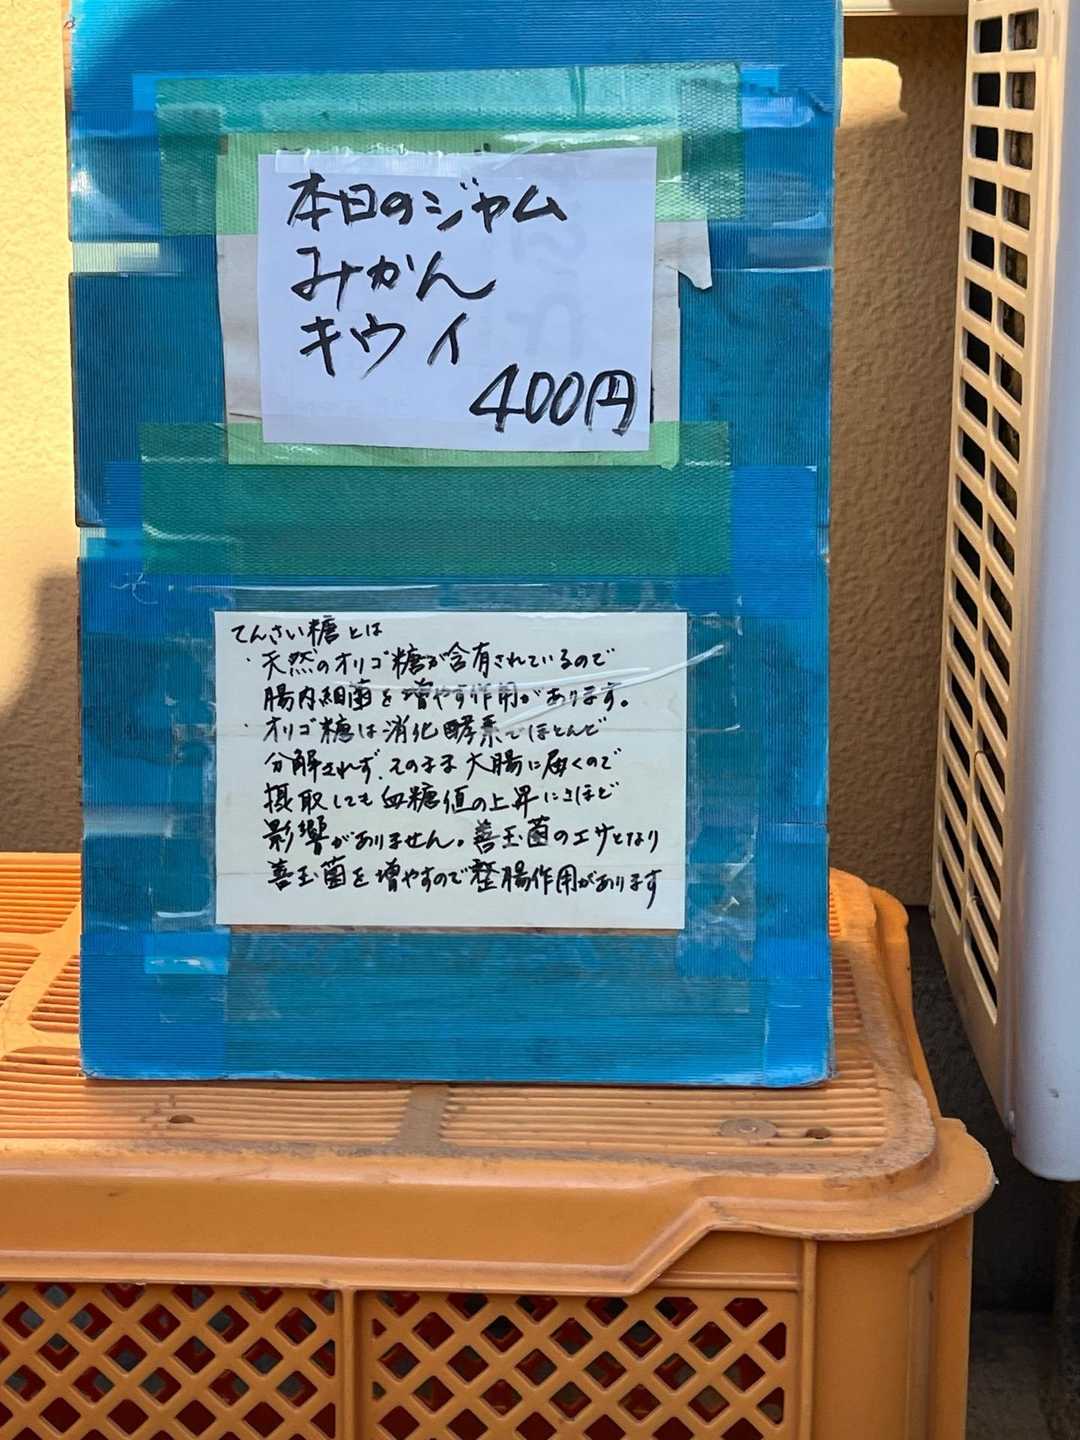 本日のジャム
みかん
キウイ
400円
てんさい糖とは
・天然のオリゴ糖が含有されているので
腸内細菌を増やす作用があります。
・オリゴ糖は消化酵素でほとんど
分解されず、そのまま大腸に届くので
摂取しても血糖値の上昇にさほど
影響がありません。善玉菌のエサとなり
善玉菌を増やすので整腸作用があります